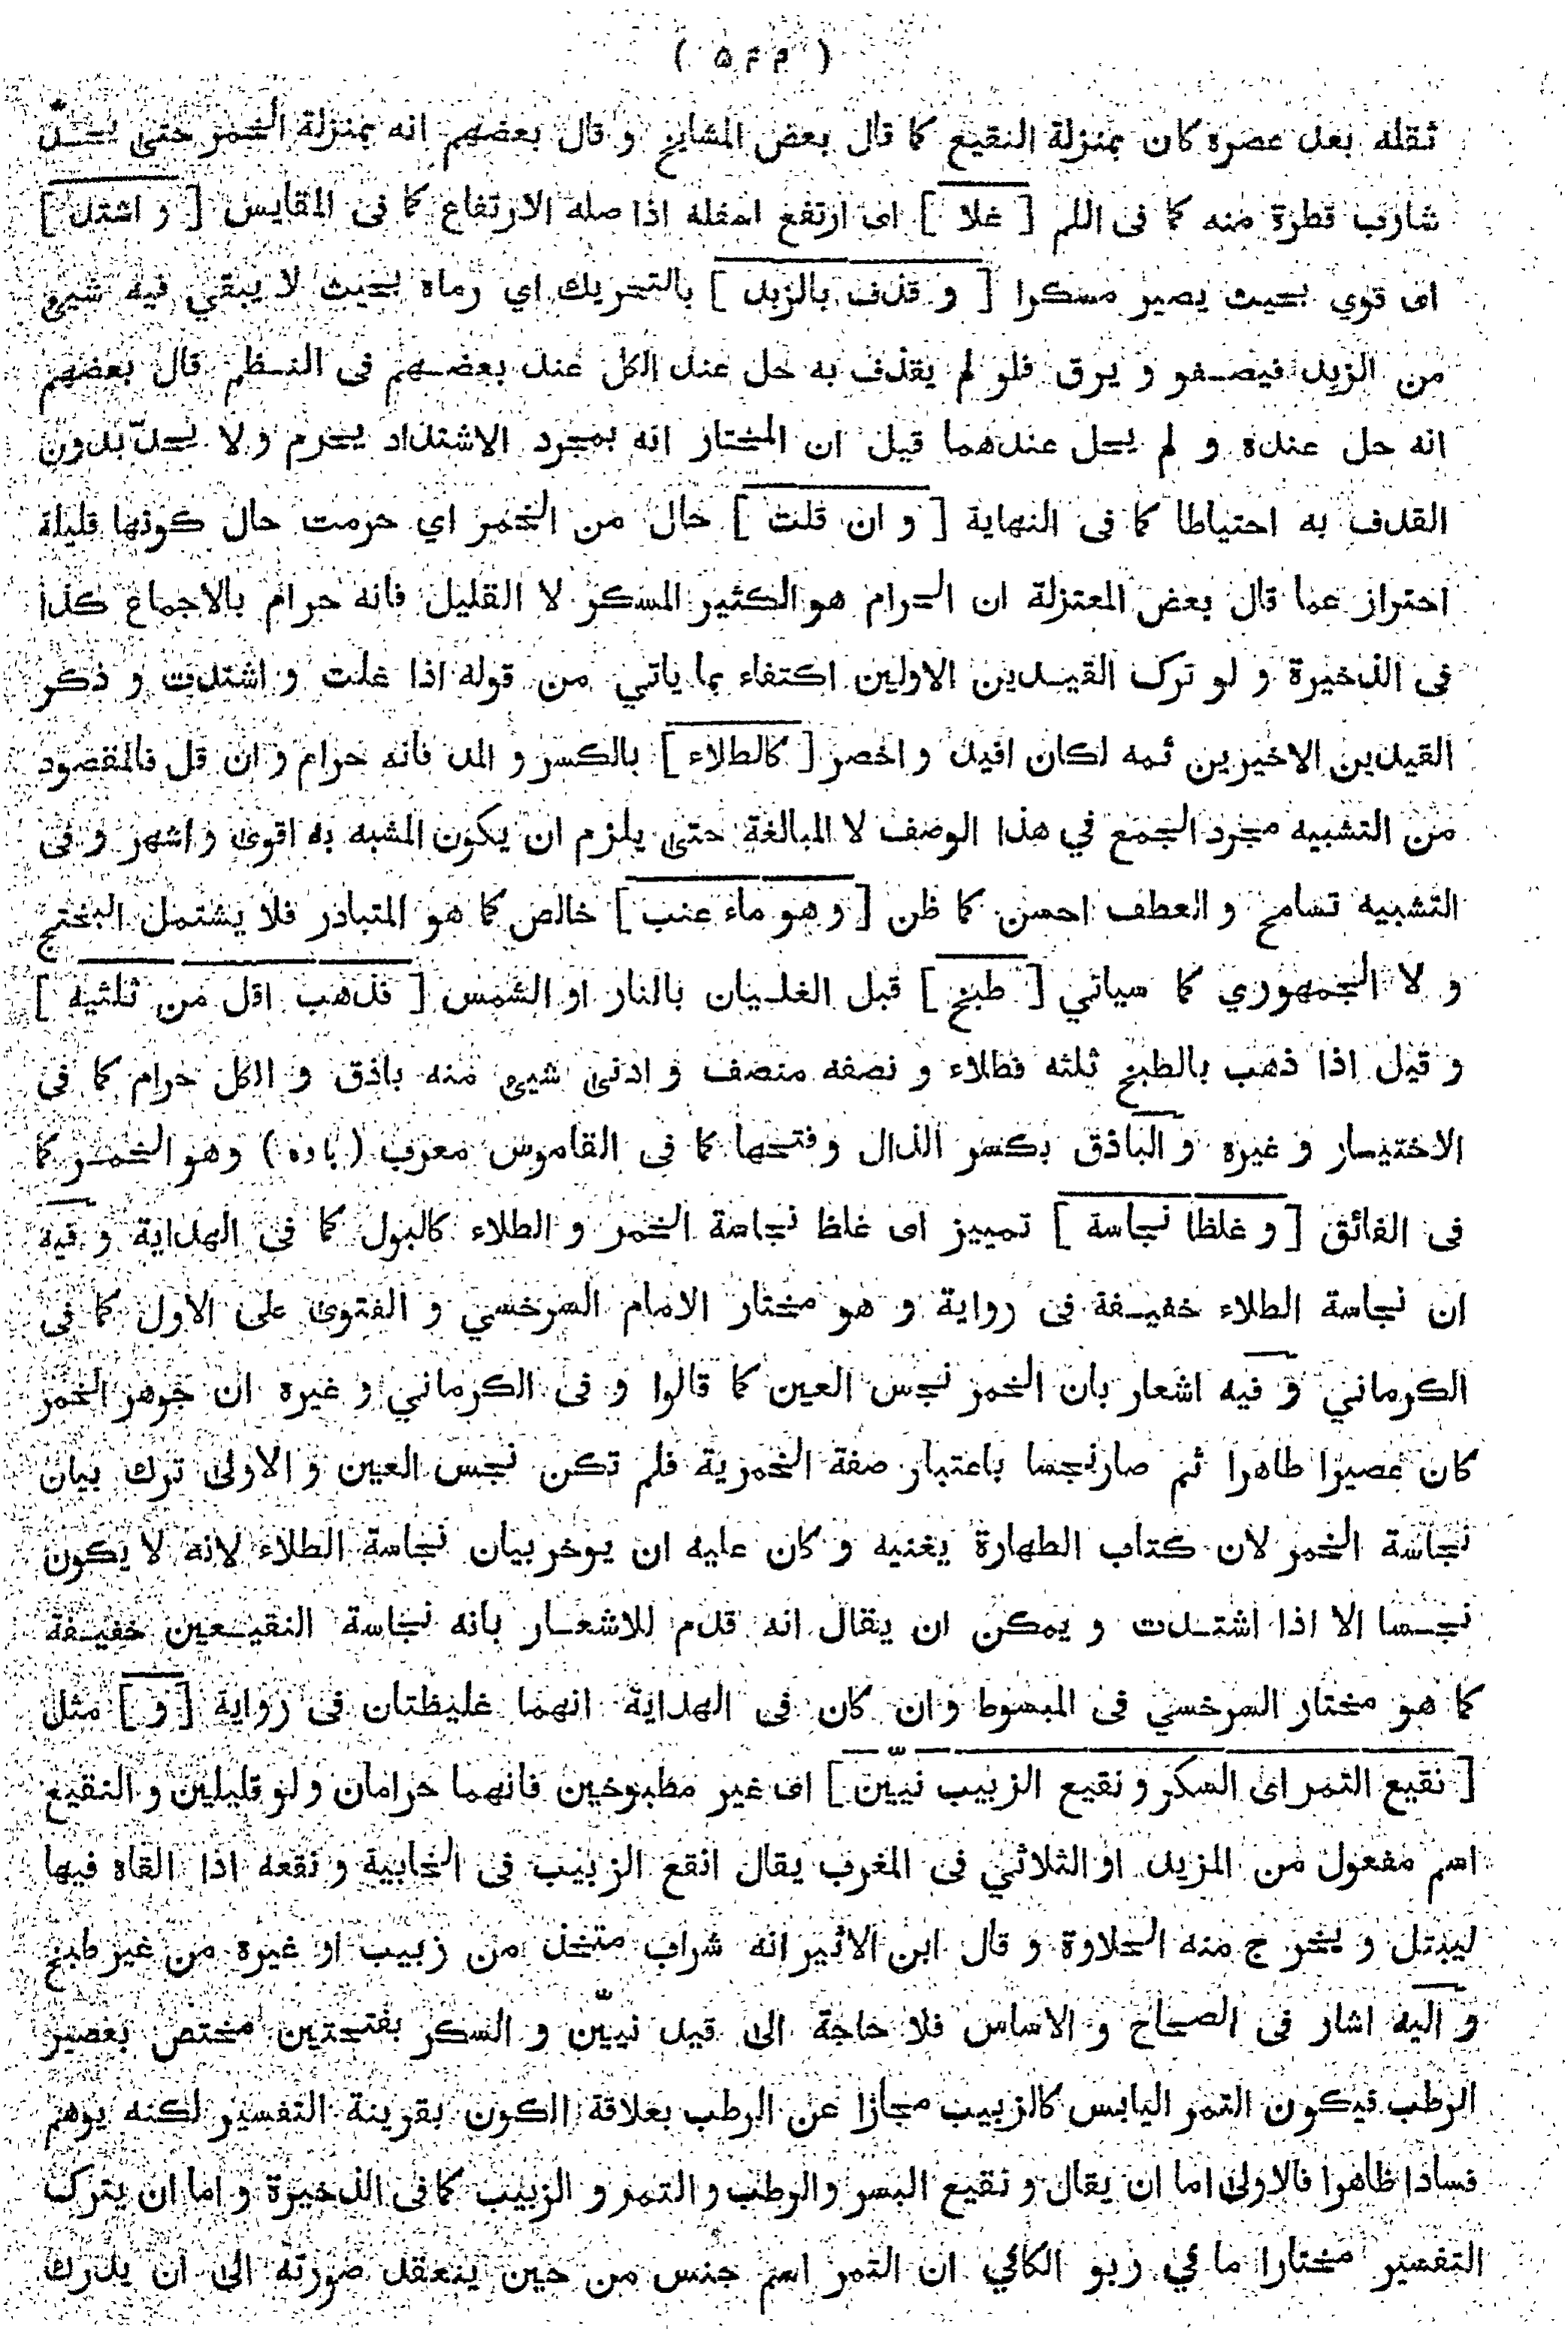 ( ۵۴۴ )
ثقله بعد عصره كان بمنزلة النقيع كما قال بعض المشايخ و قال بعضهم انه بمنزلة الخمر حتى يحدّ
شارب قطرة منه كما فى اللم [ غلا ] اى ارتفع اسفله اذا صله الارتفاع كما فى المقايس [ و اشتد ]
اى قوي بحيث يصير مسكرا [ و قذف بالزبد ] بالتحريك اي رماه بحيث لا يبقي فيه شيئ
من الزبد فيصفو و يرق فلو لم يقذف به حل عند الكل عند بعضهم فى النظم قال بعضهم
انه حل عنده و لم يحل عندهما قيل ان المختار انه بمجرد الاشتداد يحرم و لا يحدّ بدون
القذف به احتياطا كما فى النهاية [ و ان قلت ] حال من الخمر اي حرمت حال كونها قليلة
احتراز عما قال بعض المعتزلة ان الحرام هو الكثير المسكر لا القليل فانه حرام بالاجماع كذا
فى الذخيرة و لو ترك القيدين الاولين اكتفاء بما ياتي من قوله اذا غلت و اشتدت و ذكر
القيدين الاخيرين ثمه لكان افيد و اخصر [ كالطلاء ] بالكسر و المد فانه حرام و ان قل فالمقصود
من التشبيه مجرد الجمع في هذا الوصف لا المبالغة حتى يلزم ان يكون المشبه به اقوى و اشهر و فى
التشبيه تسامح و العطف احسن كما ظن [ و هو ماء عنب ] خالص كما هو المتبادر فلا يشتمل البختج
و لا الجمهوري كما سياتي [ طبخ ] قبل الغليان بالنار او الشمس [ فذهب اقل من ثلثيه ]
و قيل اذا ذهب بالطبخ ثلثه فطلاء و نصفه منصف و ادنى شيئ منه باذق و الكل حرام كما فى
الاختيار و غيره و الباذق بكسر الذال و فتحها كما فى القاموس معرب ( باده ) وهو الخمر كما
فى الفائق [ و غلظا نجاسة ] تمييز اى غلظ نجاسة الخمر و الطلاء كالبول كما فى الهداية و فيه
ان نجاسة الطلاء خفيفة فى رواية و هو مختار الامام السرخسي و الفتوى على الاول كما فى
الكرماني و فيه اشعار بان الخمر نجس العين كما قالوا و فى الكرماني و غيره ان جوهر الخمر
كان عصيرا طاهرا ثم صار نجسا باعتبار صفة الخمرية فلم تكن نجس العين و الاولى ترك بيان
نجاسة الخمر لان كتاب الطهارة يغنيه و كان عليه ان يوخر بيان نجاسة الطلاء لانه لا يكون
نجسا الا اذا اشتدت و يمكن ان يقال انه قدم للاشعار بانه نجاسة النقيعين خفيفة
كما هو مختار السرخسي فى المبسوط و ان كان فى الهداية انهما غليظتان فى رواية [ و ] مثل
[ نقيع التمر اى السكر و نقيع الزبيب نيّين ] اى غير مطبوخين فانهما حرامان و لو قليلين و النقيع
اسم مفعول من المزيد او الثلاثي فى المغرب يقال انقع الزبيب فى الخابية و نقعه اذا القاه فيها
ليبتل و يخرج منه الحلاوة و قال ابن الاثير انه شراب متخذ من زبيب او غيره من غير طبخ
و اليه اشار فى الصحاح و الاساس فلا حاجة الى قيد نيّين و السكر بفتحتين مختص بعصير
الرطب فيكون التمر اليابس كالزبيب مجازا عن الرطب بعلاقة الكون بقرينة التفسير لكنه يوهم
فسادا ظاهرا فالاولى اما ان يقال و نقيع البسر و الرطب و التمر و الزبيب كما فى الذخيرة و اما ان يترك
التفسير مختارا ما في ربو الكافي ان التمر اسم جنس من حين ينعقد صورته الى ان يدرك